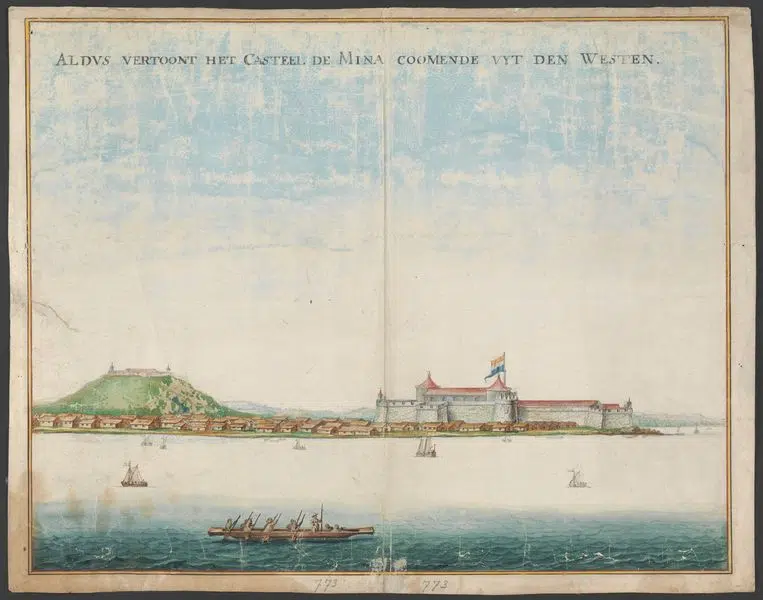 ALDVS VERTOONT HET CASTEEL DE MINA COOMENDE VYT DEN WESTEN.
773 773